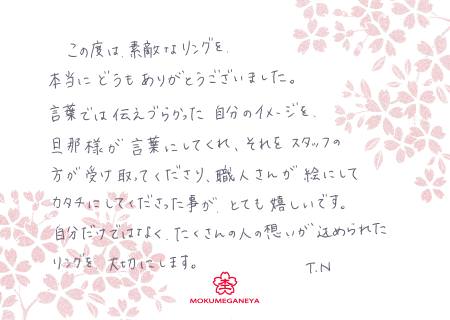 この度は、素敵なリングを、
本当にどうもありがとうございました。
言葉では伝えづらかった自分のイメージを、
旦那様が言葉にしてくれ、それをスタッフの
方が受け取ってくださり、職人さんが絵にして
カタチにしてくださった事が、とても嬉しいです。
自分だけではなく、たくさんの人の想いが込められた
リングを大切にします。
T.N
MOKUMEGANEYA